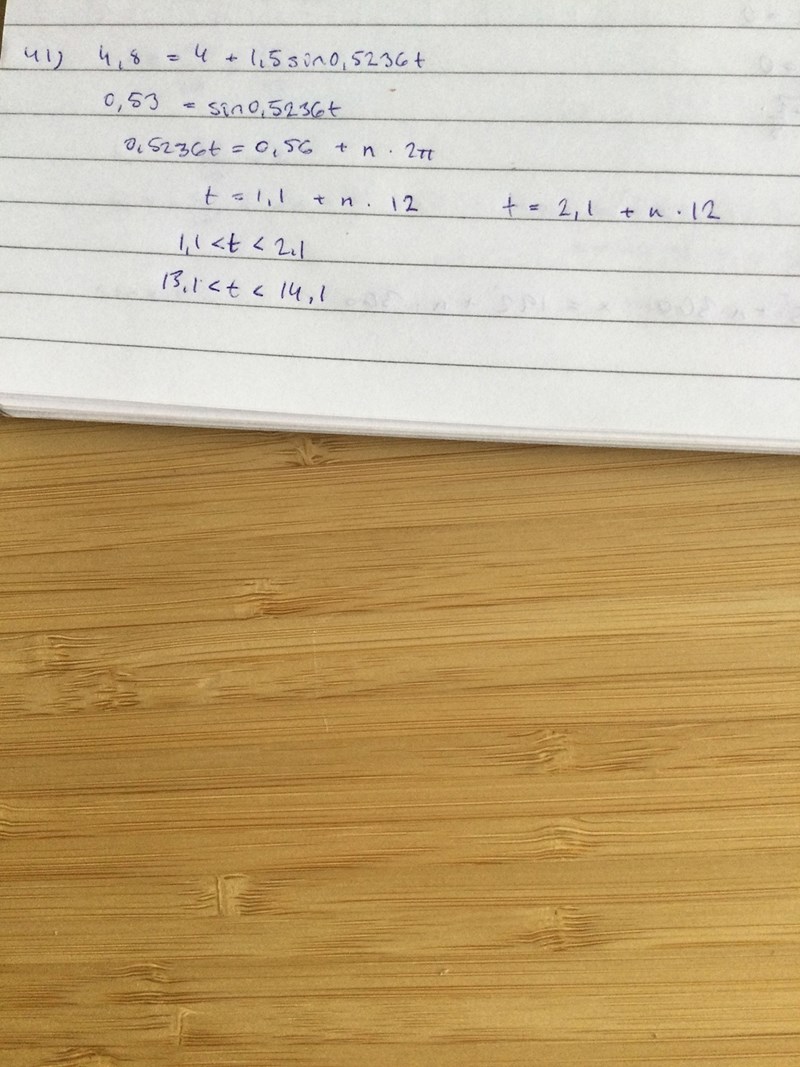 41) 4,8 = 4 + 1,5 sin 0,5236t
0,53 = sin 0,5236t
0,5236t = 0,56 + n · 2π
t = 1,1 + n · 12 t = 2,1 + n · 12
1,1 < t < 2,1
13,1 < t < 14,1